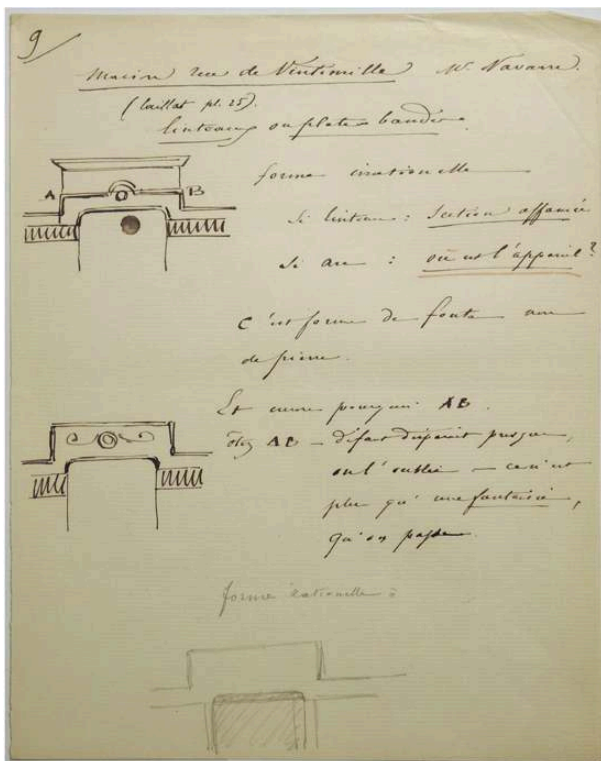 9
Maison rue de Vintimille Mr. Navarre.
(Caillat pl. 25).
linteaux ou plates bandes.
A B
forme irrationelle
si linteau : section affamée
si arc : où est l'appareil ?
C'est forme de fonte non
de pierre.
Et encore pourquoi AB.
ôtez AB – défaut disparait presque,
on l'oublie – ce n'est
plus qu'une fantaisie,
qu'on passe.
forme rationelle :